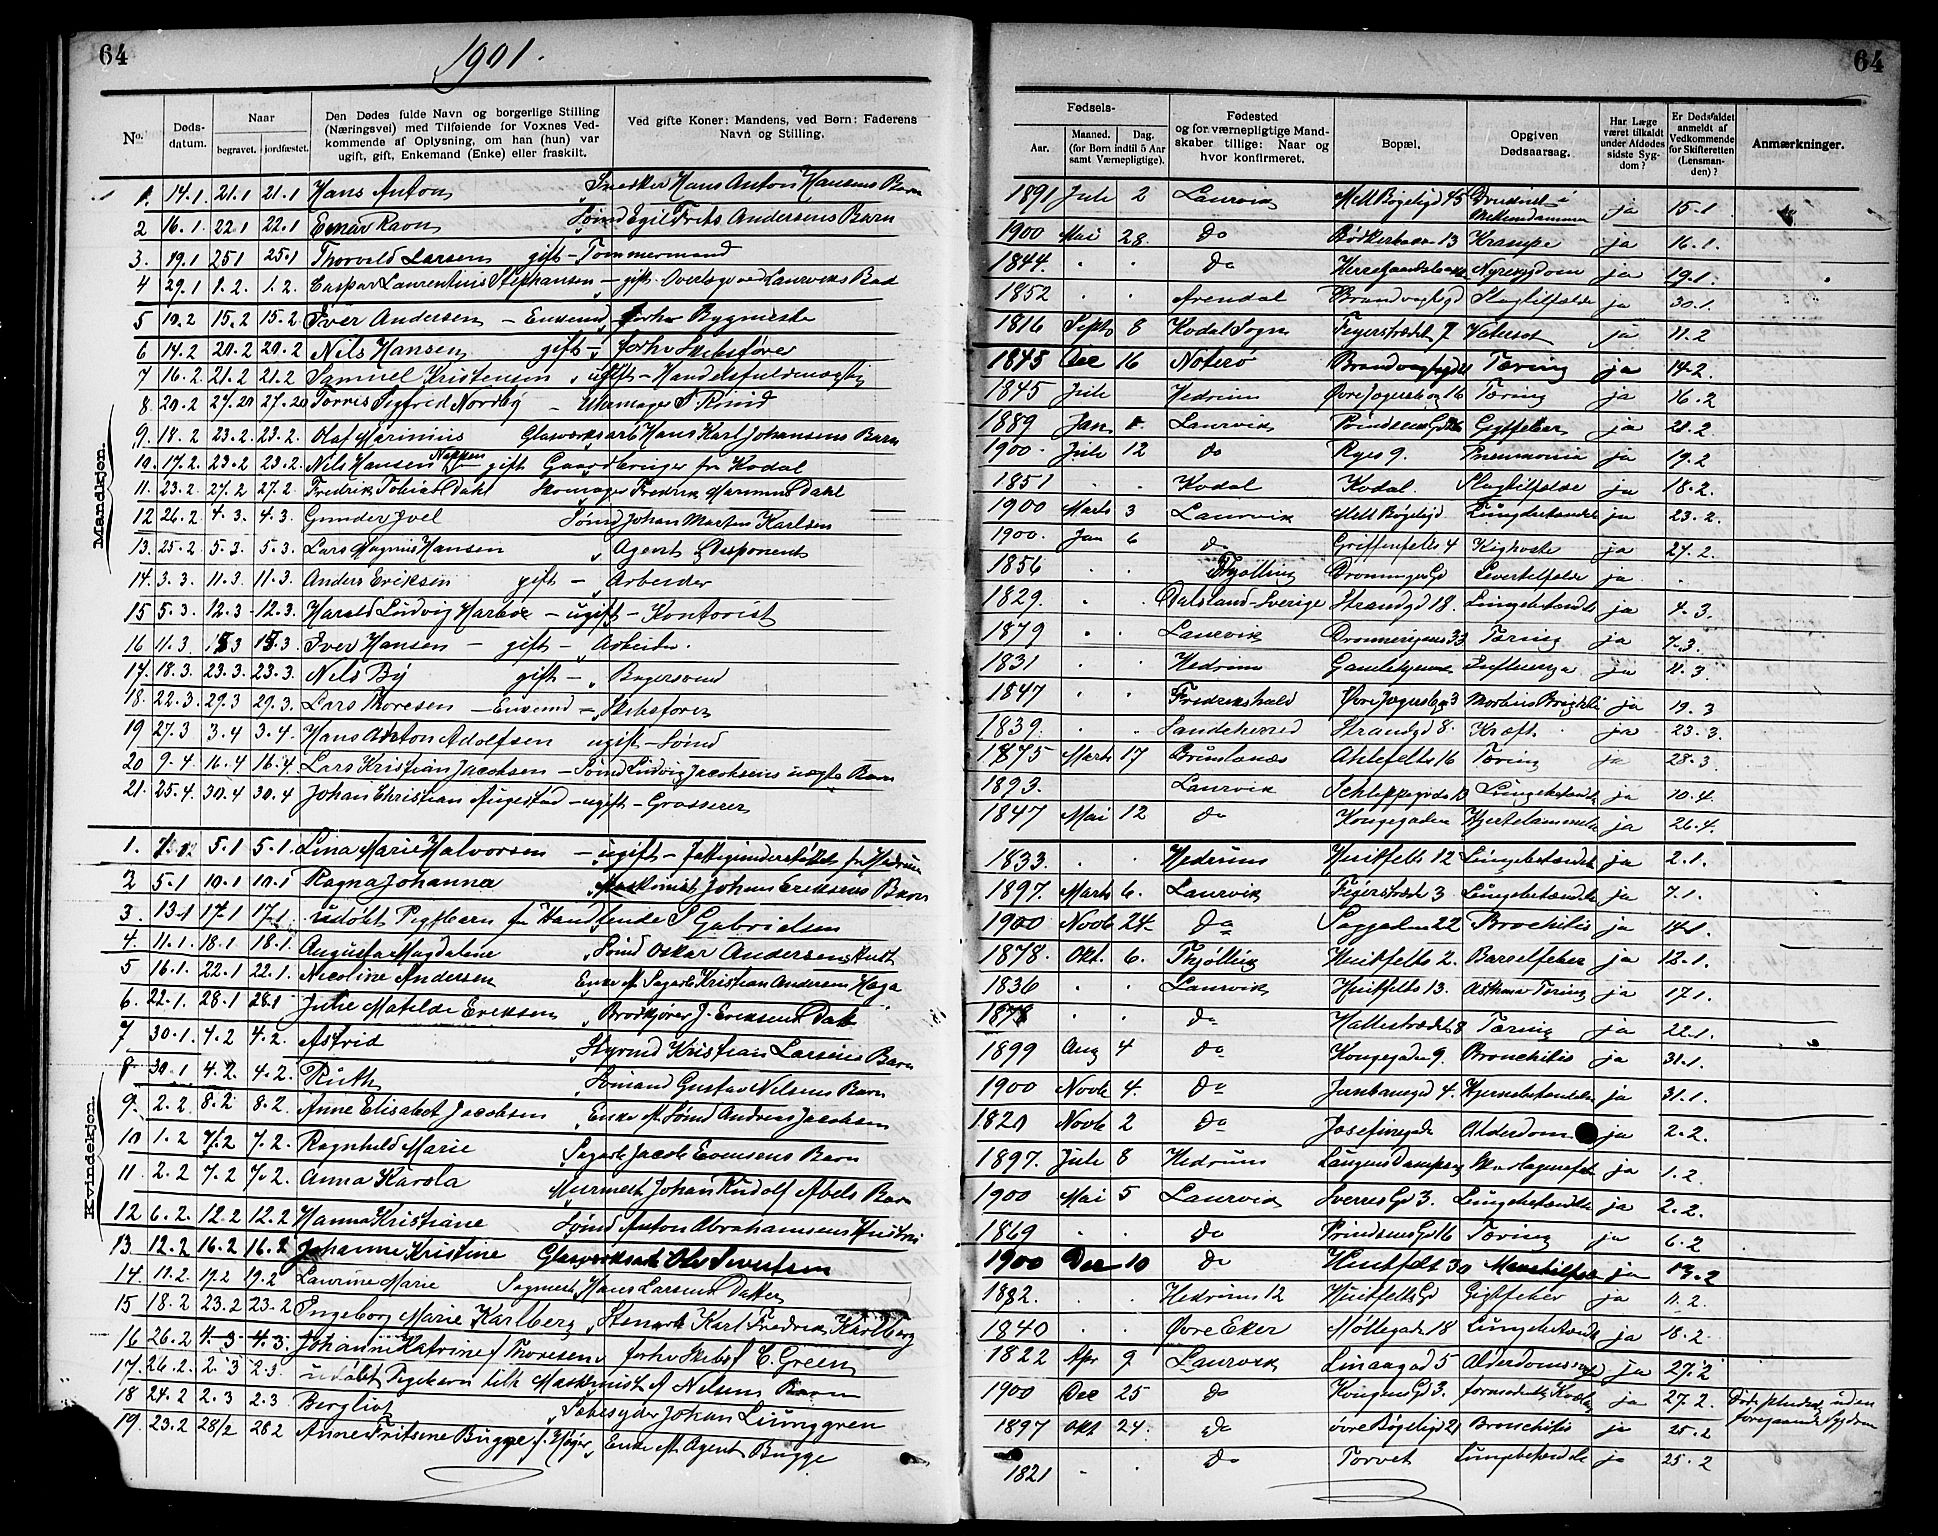 64
1901.
64
No.
Døds-datum.
Naar
begravet.
jordfæstet.
Den Dødes fulde Navn og borgerlige Stilling (Næringsvei) med Tilføiende for Voxnes Vedkommende af Oplysning, om han (hun) var ugift, gift, Enkemand (Enke) eller fraskilt.
Ved gifte Koner: Mandens, ved Børn: Faderens Navn og Stilling.
Fødsels-
Aar.
Maaned. Dag.
(for Børn indtil 5 Aar samt Værnepligtige).
Fødested og for værnepligtige Mandskaber tillige: Naar og hvor konfirmeret.
Bopæl.
Opgiven Dødsaarsag.
Har Læge været tilkaldt under Afdødes sidste Sygdom?
Er Dødsfaldet anmeldt af Vedkommende for Skifteretten (Lensmanden)?
Anmærkninger.
Mandkjøn.
1. 14.1 21.1 21.1 Hans Anton Snedker Hans Anton Hansens Barn 1891 Juli 2 Laurvik Mell Bøgeligd 45 Druknet i Mellomdammen ja 15.1
2 16.1. 22.1 22.1 Einar Ravn Sømd Egil Frits Andersens Barn 1900 Mai 28. do Bøkkerbakken 13 Krampe ja 16.1.
3. 19.1 25.1 25.1 Thorvald Larsen gift - Tømmermand 1844. do Nyresygdom ja 19.1.
4 29.1 1.2. 1.2. Caspar Laurentius Stephansen - gift. Overlæge ved Laurviks Bad 1852 Arendal Brandvagtgd Slagtilfælde ja 30.1.
5 10.2 15.2 15.2 Iver Andersen - Enkemd forhv Bygmester 1816 Septb 8 Kodal Sogn Feyerstrædet 7 Vatersot ja 11.2
6 14.2 20.2 20.2 Nils Hansen gift - forhv Skibsfører 1845 Dec 16 Nøterø Brandvagtgd Tæring ja 14.2.
7 16.2. 21.2 21.2 Samuel Kristensen ugift - Handelsfuldmægtig 1845 Juli Hedrum Øvre Jegersborg 16 Tæring ja 16.2
8. 20.2 27.20 27.20 Torris Sigfred Nordby - Uhrmager S. Rønd 1889 Jan Laurvik Prindsens Gd Gigtfeber ja 21.2.
9. 18.2 23.2. 23.2. Olaf Marinius Glasværksarb Hans Karl Johansens Barn 1900. Juli 12 do Ryes 9. Pneumonia ja 19.2
10. 17.2. 23.2 23.2. Nils Hansen gift Gaardbruger fra Kodal 1851 Kodal Kodal. Slagtilfælde ja 18.2.
11. 23.2. 27.2 27.2. Fredrik Tobias Dahl Skomager Fredrik Marinius Dahl 1900 Marts 3 Laurvik Mell Bøgeligd Lungebetændelse ja 23.2.
12 26.2. 4.3. 4.3. Gunder Joel Sømd Johan Morten Karlsen 1900. Jan 6 do Griffenfelts 4 Kighoste ja 27.2.
13. 25.2 5.3. 5.3. Lars Magnus Hansen Agent Disponent 1856 Thjølling Dronningens Gd Levertilfælde ja
14. 3.3. 11.3. 11.3. Anders Eriksen gift - Arbeider 1829. Dalsland Sverige Strandgd 18. Lungebetændelse ja 4.3.
15 5.3. 12.3 12.3. Harald Ludvig Harboe - ugift - Kontorist 1879 Laurvik Dronningens 33 Tæring ja 7.3.
16 11.3. 15.3 15.3. Iver Hansen - gift - Arbeider. 1831 Hedrum Influenza ja 11.3.
17. 18.3. 23.3 23.3. Nils By gift - Bagersvend 1847 Fredrikshald Øvre Jegersborg 3 Morbus Brightii ja 19.3
18. 22.3. 29.3 29.3. Lars Thoresen - Enkemd - Skibsfører 1839. Sandeherred Strandgd 8. Kræft ja 23.3.
19 27.3 3.4 3.4. Hans Anton Adolfsen ugift - Sømd 1875 Marts 17 Brunlanæs Ahlefelts 16 Tæring ja 28.3.
20 9.4 16.4 16.4. Lars Kristian Jacobsen - Sømd Ludvig Jacobsens uægte Barn 1893. Laurvik Lungebetændelse ja 10.4.
21. 25.4. 30.4 30.4 Johan Christian Augestad - ugift - Grosserer 1847 Mai 12 do Kongegaden Hjertelammelse ja 26.4.
Kvindekjøn.
1. 5.1 5.1. Lina Marie Halvorsen - ugift - fattigunderstøttet fra Hedrum 1833. Hedrum Huitfelts 12 Lungebetændelse ja 2.1.
2 5.1 10.1 10.1 Ragna Johanna Maskinist Johans Eriksens Barn 1897. Marts 6. Laurvik Feyerstræde 3 Lungebetændelse ja 7.1.
3. 13.1 17.1 17.1. udøbt Pigebarn fra Handlende S Gabrielsen 1900 Novb 24 do Saggaden 22 Bronchitis ja 14.1.
4. 11.1. 18.1 18.1. Augusta Magdalene Sømd Oskar Andersens Hustr 1878. Okt. 6. Thjølling Huitfelts 2. Barselfeber ja 12.1.
5 16.1. 22.1 22.1. Nicoline Andersen Enke Af Sagarb Kristian Andersen Haga 1836 Laurvik Huitfelts 13. Asthma Tæring ja 17.1.
6. 22.1. 28.1 28.1 Julie Matilde Eriksen Brodkjører J. Eriksens Dat 1878 do Hallestrædet 8 Tæring ja 22.1.
7 30.1. 4.2 4.2. Astrid Styrmd Kristian Larsens Barn 1899 Aug 4 do Kongegaden 9. Bronchitis ja 31.1.
8. 30.1 4.2. 4.2. Ruth Sømand Gustav Nilsens Barn 1900 Novb 4. do Jernbanegd 4. Hjernebetændelse ja 31.1.
9. 2.2 8.2 8.2. Anne Elisabet Jacobsen Enke Af Sømd Andreas Jacobsen 1820 Novb 2 do Josefinegade Alderdom ja 2.2.
10 1.2 7.2 7.2. Ragnhild Marie Sagarb Jacob Evensens Barn 1897. Juli 8 Hedrum ja 1.2.
11. 2.2 7.2 7.2. Anna Karola Murmest Johan Rudolf Abels Barn 1900 Mai 5 Laurvik Sverres Gd 3. Lungebetændelse ja 2.2.
12 6.2. 12.2 12.2 Hanna Kristiane Sømd Anton Abrahamsens Hustru 1869 do Prindsens Gd 16 Tæring ja 6.2
13. 12.2 16.2 16.2 Johanne Kristine Glasværksarb Ole Sivertsen 1900 Dec 10 do Huitfelt 30 ja 13.2
14. 11.2. 19.2 19.2 Laurine Marie Sagmest Hans Larsens Datter 1882. Hedrum 12 Huitfelts Gd Gigtfeber ja 11.2.
15 18.2 23.2 23.2 Ingeborg Marie Karlberg Stenarb Karl Fredrik Karlberg 1840 Øvre Eker Møllegaden 18 Lungebetændelse ja 18.2
16 26.2 4.3 4.3. Johanne Katrine f Thoresen forhv Skibsf C. Green 1822 Apr 9 Laurvik Linaagad 5 Alderdomssvag ja 27.2
17. 26.2. 2.3 2.3. udøbt Pigebarn till Maskinist A Nilsens Barn 1900 Dec 25 do Kongens Gd 3. ja 27.2. Død pludselig uden foregaaende Sygdom
18 24.2 2.3 2.3 Bergliot Sæbesyder Johan Ljunggren 1897 Okt 24. do øvre Bøgeligd 21 Bronchitis ja 25.2
19. 23.2 28/2 28.2 Anne Fritsene Bugge f. Høyer Enke Af Agent Bugge 1821 do Torvet Lungebetændelse ja 25.2